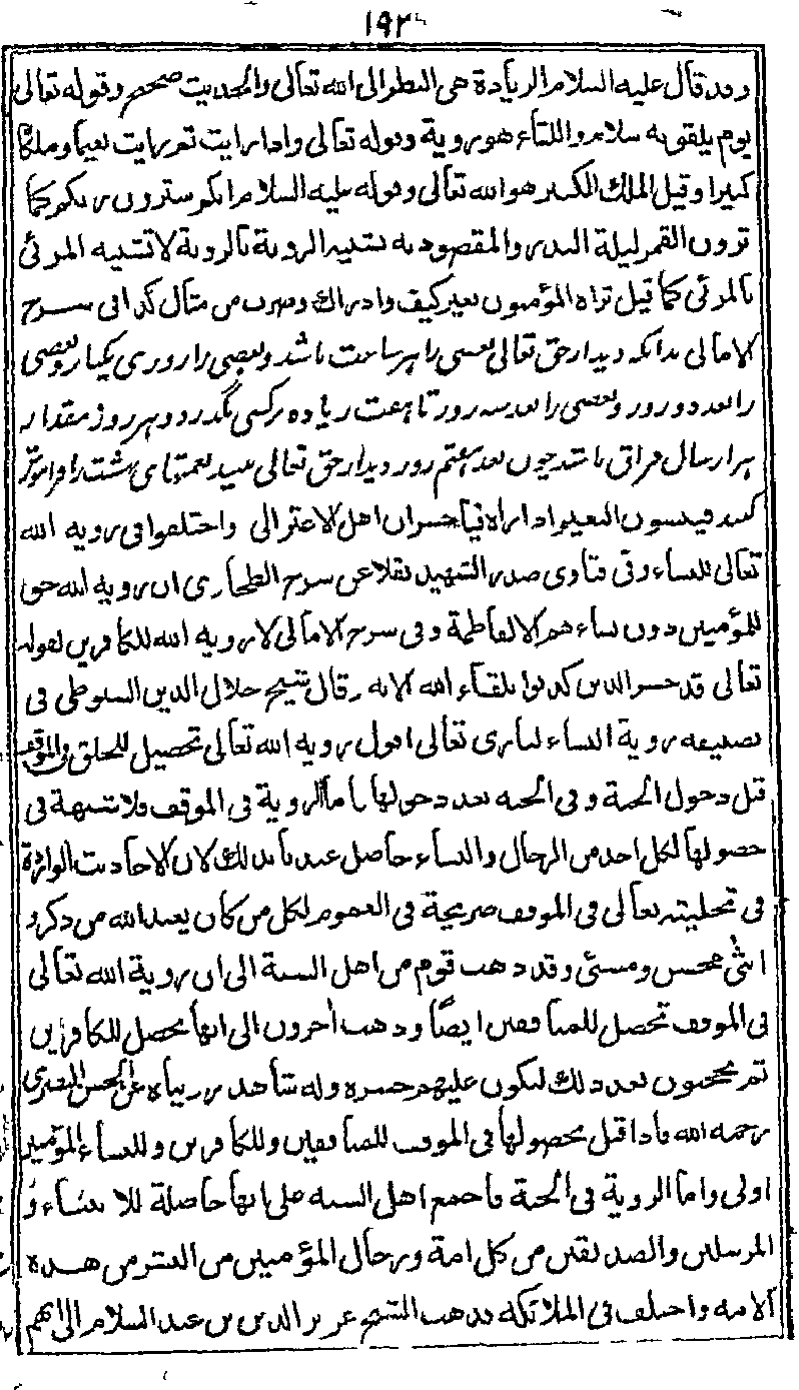 ۱۹۲
وقد قال عليه السلام الزيادة هي النظر الى الله تعالى والحديث صحيح وقوله تعالى
يوم يلقونه سلام واللقاء هو روية وقوله تعالى واذا رايت ثم رايت نعيما وملكا
كبيرا وقيل الملك الكبير هو الله تعالى وقوله عليه السلام انكم سترون ربكم كما
ترون القمر ليلة البدر والمقصود به تشبيه الروية بالروية لا تشبيه المرئى
بالمرئى كما قيل تراه المؤمنون بغير كيف وادراك وضرب من مثال كذا فى شرح
الامالى بدانكه ديدار حق تعالى بعضى را هر ساعت باشد وبعضى را روزى يكبار وبعضى
را بعد دو روز وبعضى را بعد سه روز تا هفت زياده بركسى نگذرد و هر روز مقدار
هزار سال فراق باشد چون بعد هفتم روز ديدار حق تعالى بينند نعمتهاى بهشت را فراموش
كنند فينسون النعيم اذا راه فيا خسران اهل الاعتزالى واختلفوا فى روية الله
تعالى للنساء وفى فتاوى صدر الشهيد نقلا عن شرح الطحاوى ان روية الله حق
للمؤمنين دون نساءهم الا لفاطمة وفى شرح الامالى لا روية الله للكافرين لقوله
تعالى قد خسر الذين كذبوا بلقاء الله الاية وقال شيخ جلال الدين السيوطى فى
تصنيفه روية النساء لبارى تعالى اقول روية الله تعالى تحصيل للخلق فى الموقف
قبل دخول الجنة وفى الجنة بعد دخولها اما الروية فى الموقف فلا شبهة فى
حصولها لكل احد من الرجال والنساء حاصل عندنا بذلك لان الاحاديث الواردة
فى تجليته تعالى فى الموقف صريحة فى العموم لكل من كان يعبد الله من ذكر و
انثى محسن ومسئى وقد ذهب قوم من اهل السنة الى ان روية الله تعالى
فى الموقف تحصل للمنافقين ايضا وذهب اخرون الى انها يحصل للكافرين
ثم يحجبون بعد ذلك ليكون عليهم حسرة وله شاهد رويناه عن الحسن البصرى
رحمه الله فاذا قيل بحصولها فى الموقف للمنافقين وللكافرين وللنساء المؤمنين
اولى واما الروية فى الجنة فاجمع اهل السنه على انها حاصلة للانبياء و
المرسلين والصديقين من كل امة ورجال المؤمنين من البشر من هذه
الامه واختلف فى الملائكة فذهب الشيخ عزيز الدين بن عبد السلام الى انهم